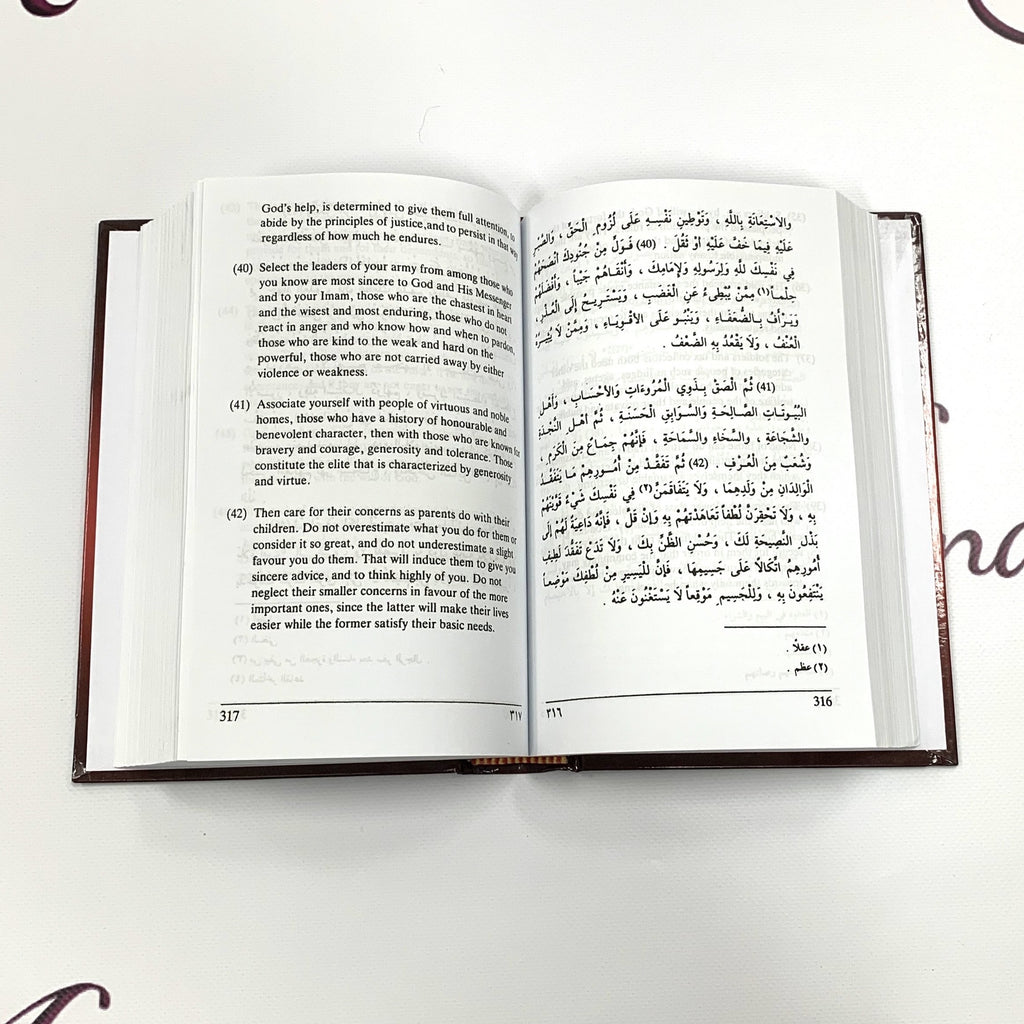 God's help, is determined to give them full attention, to
abide by the principles of justice,and to persist in that way
regardless of how much he endures.
(40) Select the leaders of your army from among those who
you know are most sincere to God and His Messenger
and to your Imam, those who are the chastest in heart
and the wisest and most enduring, those who do not
react in anger and who know how and when to pardon,
those who are kind to the weak and hard on the
powerful, those who are not carried away by either
violence or weakness.
(41) Associate yourself with people of virtuous and noble
homes, those who have a history of honourable and
benevolent character, then with those who are known for
bravery and courage, generosity and tolerance. Those
constitute the elite that is characterized by generosity
and virtue.
(42) Then care for their concerns as parents do with their
children. Do not overestimate what you do for them or
consider it so great, and do not underestimate a slight
favour you do them. That will induce them to give you
sincere advice, and to think highly of you. Do not
neglect their smaller concerns in favour of the more
important ones, since the latter will make their lives
easier while the former satisfy their basic needs.
317 ٣١٧
والاسْتِعَانَةِ بِاللَّهِ ، وَتَوْطِينِ نَفْسِهِ عَلَى لُزُومِ الْحَقِّ ، وَالصَّبْرِ
عَلَيْهِ فِيمَا خَفَّ عَلَيْهِ أَوْ ثَقُلَ . (40) فَوَلِّ مِنْ جُنُودِكَ أَنْصَحَهُمْ
فِي نَفْسِكَ لِلَّهِ وَلِرَسُولِهِ وَلِإمَامِكَ ، وَأَنْقَاهُمْ جَيْباً ، وَأَفْضَلَهُمْ
حِلْماً(١) مِمَّنْ يُبْطِىءُ عَنِ الْغَضَبِ ، وَيَسْتَرِيحُ إلَى الْعُذْرِ ،
وَيَرْأَفُ بِالضُّعَفَاءِ ، وَيَنْبُو عَلَى الأقْوِيَاءِ ، وَمِمَّنْ لَا يُثِيرُهُ
الْعُنْفُ ، وَلَا يَقْعُدُ بِهِ الضَّعْفُ .
(41) ثُمَّ الْصَقْ بِذَوِي الْمُرُوءَاتِ وَالأحْسَابِ ، وَأَهْلِ
الْبُيُوتَاتِ الصَّالِحَةِ وَالسَّوَابِقِ الْحَسَنَةِ ، ثُمَّ أَهْلِ النَّجْدَةِ
وَالشَّجَاعَةِ ، وَالسَّخَاءِ وَالسَّمَاحَةِ ، فَإِنَّهُمْ جِمَاعٌ مِنَ الْكَرَمِ ،
وَشُعَبٌ مِنَ الْعُرْفِ . (42) ثُمَّ تَفَقَّدْ مِنْ أُمُورِهِمْ مَا يَتَفَقَّدُ
الْوَالِدَانِ مِنْ وَلَدِهِمَا ، وَلَا يَتَفَاقَمَنَّ(٢) فِي نَفْسِكَ شَيْءٌ قَوَّيْتَهُمْ
بِهِ ، وَلَا تَحْقِرَنَّ لُطْفاً تَعَاهَدْتَهُمْ بِهِ وَإِنْ قَلَّ ، فَإِنَّهُ دَاعِيَةٌ لَهُمْ إلَى
بَذْلِ النَّصِيحَةِ لَكَ ، وَحُسْنِ الظَّنِّ بِكَ ، وَلَا تَدَعْ تَفَقُّدَ لَطِيفِ
أُمُورِهِمُ اتِّكَالاً عَلَى جَسِيمِهَا ، فَإِنَّ لِلْيَسِيرِ مِنْ لُطْفِكَ مَوْضِعاً
يَنْتَفِعُونَ بِهِ ، وَلِلْجَسِيمِ مَوْقِعاً لَا يَسْتَغْنُونَ عَنْهُ .
(١) عقلاً .
(٢) عظم .
316 ٣١٦